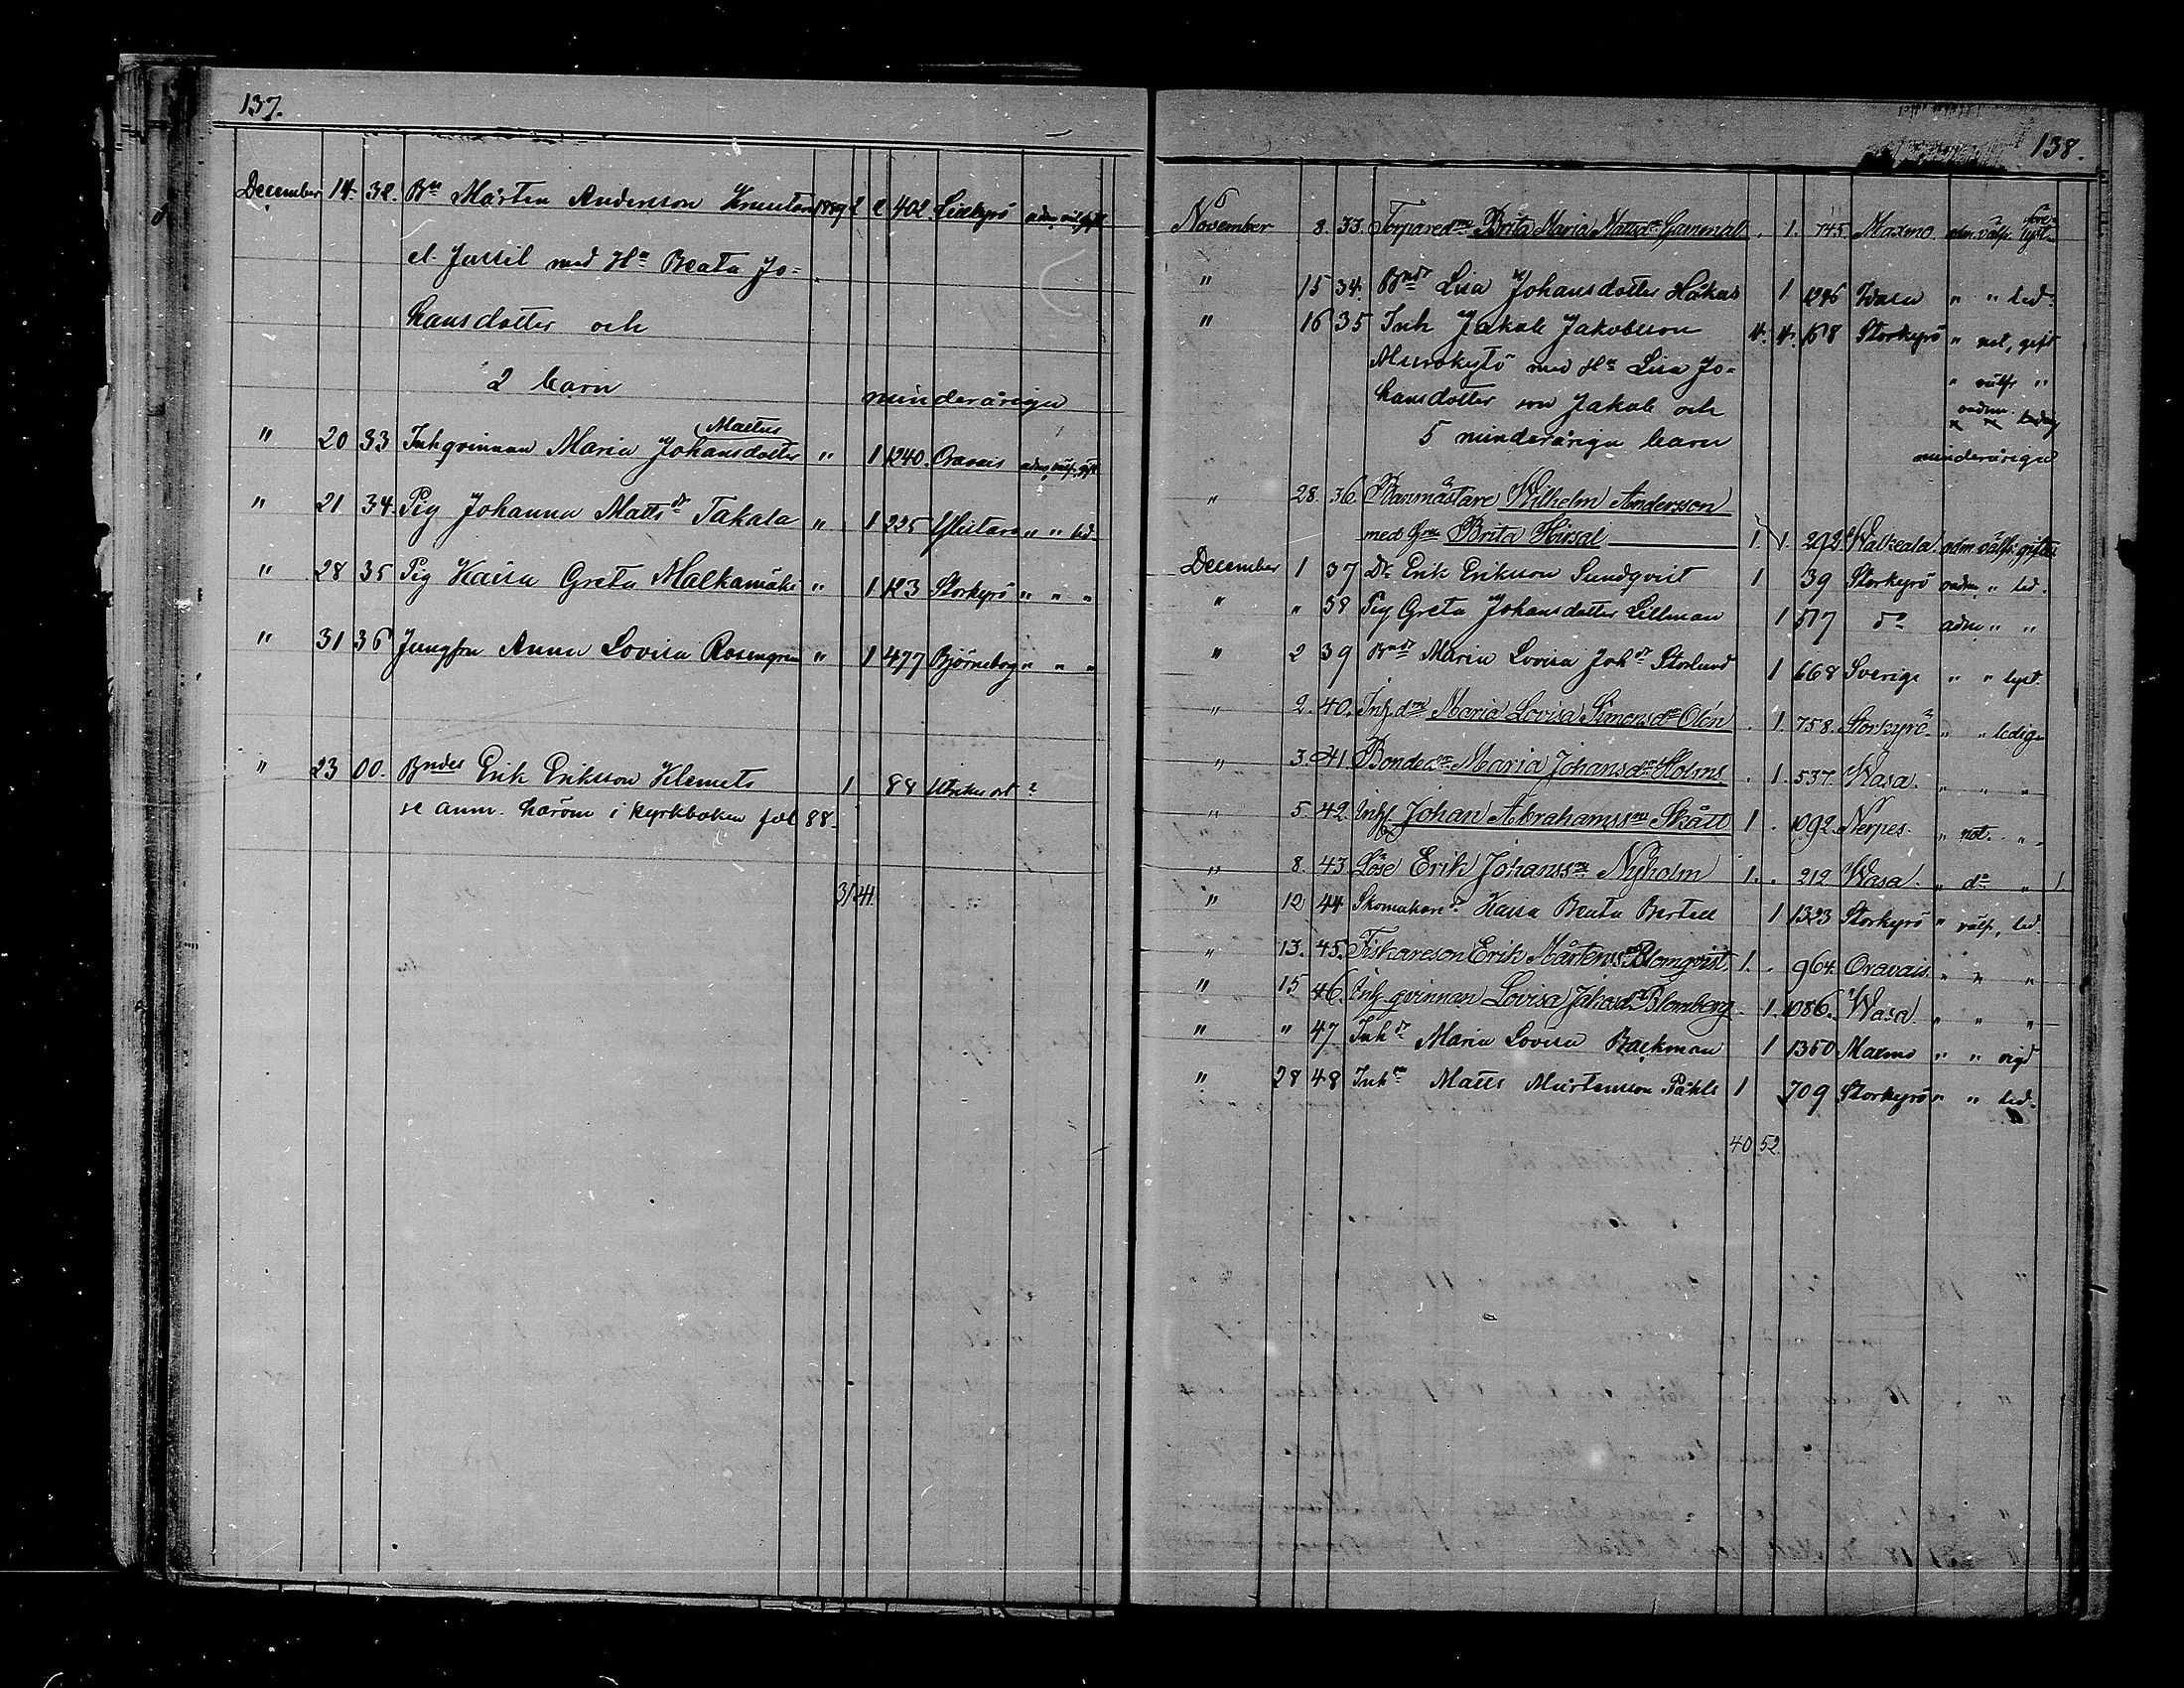 137.
December 14. 32. Bn Mårten Andersson Knuutar 1889 2 2 402 Lillkyrö adm, välfr, gift
el. Jussil med Hu Beata Jo-
hansdotter och
2 barn minderåriga
Maetus
" 20 33 Inhqvinnan Maria Johansdotter " 1 1240. Oravais adm, välfr, gift
" 21 34. Pig Johanna Matts dr Takala " 1 225 " " led.
" 28 35 Pig Kaisa Greta Malkamäki " 1 123 Storkyrö " " "
" 31 36 Jungfru Anna Lovisa Rosengren " 1 477 Björneborg " " "
" 23 00. Bndes Erik Eriksson Klemets 1 88 Utrikes ort ?
se anm. härom i kyrkboken fol 88.
31 41.
138.
November 8. 33. Torparedtr Brita Maria Mattsdr Gammal . 1. 745 Maxmo. adm. välfr. lyst
" 15 34. Bndr Lisa Johansdotter Håkas 1 1286 Wasa " " led.
" 16 35 Inh Jakob Jakobsson 4. 4. 1618 Storkyrö " nat, gift
med Hu Lisa Jo- " välfr "
hansdotter son Jakob och oadm. " ledig
5 minderåriga barn minderåriga
" 28. 36. Banmästare Wilhelm Andersson
med Hu Brita Hirsal 1. 1. 292. Walkeala. adm. välfr. gifta
December 1 37 Dr. Erik Eriksson Sundqvist 1 39 Storkyrö oadm, " led.
" " 38 Pig Greta Johansdotter Lillman 1 517 do adm " "
" 2 39 Bndr Maria Lovisa Johdr Storlund 1 668 Sverige " " lyst.
" 2. 40. Inh. dtr Maria Lovisa Simonsdr Olén . 1. 758. Storkyrö. " " ledig.
" 3. 41. Bondedr Maria Johansdr Holms . 1. 537. Wasa. " " "
" 5. 42. Inhs Johan Abrahamsson Skått 1 . 1092. Nerpes. " nat. "
" 8. 43. Löse Erik Johansson Nyholm 1. . 212 Wasa. " do " 1.
" 12 44 Skomakare dr Kaisa Beata Bertell 1 1323 Storkyrö " välfr, led.
" 13. 45. Fiskareson Erik Mårtenss. Blomqvist. 1. . 964. Oravais. " " "
" 15 46. Inh. qvinnan Lovisa Jakobsdr Blomberg . 1. 1086. Wasa. " " "
" " 47 Inh dr Maria Lovisa Backman 1 1350 Maxmo " " vigd
" 28 48 Inh sn Matts Mårtensson Påhls 1 709 Storkyrö " " led.
40 52.